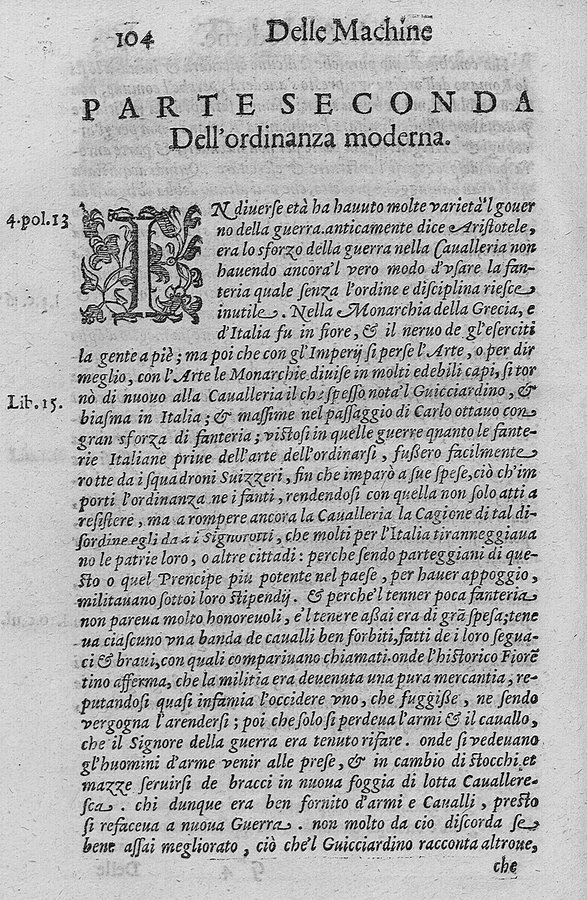 104 Delle Machine
PARTE SECONDA
Dell'ordinanza moderna.
4.pol.13
IN diverse età ha hauuto molte varietà'l gouer
no della guerra.anticamente dice Aristotele,
era lo sforzo della guerra nella Caualleria non
hauendo ancora'l vero modo d'vsare la fan-
teria quale senza l'ordine e disciplina riesce
inutile. Nella Monarchia della Grecia, e
d'Italia fu in fiore, & il neruo de gl'eserciti
la gente a piè; ma poi che con gl'Imperij si perse l'Arte, o per dir
meglio, con l'Arte le Monarchie diuise in molti edebili capi, si tor
Lib.15.
nò di nuouo alla Caualleria il che spesso nota'l Guicciardino, &
biasma in Italia; & massime nel passaggio di Carlo ottauo con
gran sforza di fanteria; vistosi in quelle guerre quanto le fante-
rie Italiane priue dell'arte dell'ordinarsi, fußero facilmente
rotte da i squadroni Suizzeri, fin che imparò a sue spese, ciò ch'im
porti l'ordinanza ne i fanti, rendendosi con quella non solo atti a
resistere, ma a rompere ancora la Caualleria la Cagione di tal di-
sordine egli da a i Signorotti, che molti per l'Italia tiranneggiaua
no le patrie loro, o altre cittadi: perche sendo parteggiani di que-
sto o quel Prencipe più potente nel paese, per hauer appoggio,
militauano sottoi loro stipendij. & perche'l tenner poca fanteria
non pareua molto honoreuoli, e'l tenere aßai era di grã spesa; tene
ua ciascuno vna banda de caualli ben forbiti, fatti de i loro segua-
ci & braui, con quali compariuano chiamati.onde l'historico Fiorẽ
tino afferma, che la militia era deuenuta una pura mercantia, re-
putandosi quasi infamia l'occidere vno, che fuggiße, ne sendo
vergogna l'arendersi; poi che solo si perdeua l'armi & il cauallo,
che il Signore della guerra era tenuto rifare. onde si vedeuano
gl'huomini d'arme venir alle prese, & in cambio di stocchi et
mazze seruirsi de bracci in nuoua foggia di lotta Cauallere-
sca. chi dunque era ben fornito d'armi e Caualli, presto
si refaceua a nuoua Guerra. non molto da cio discorda se
bene assai megliorato, ciò che'l Guicciardino racconta altroue,
che